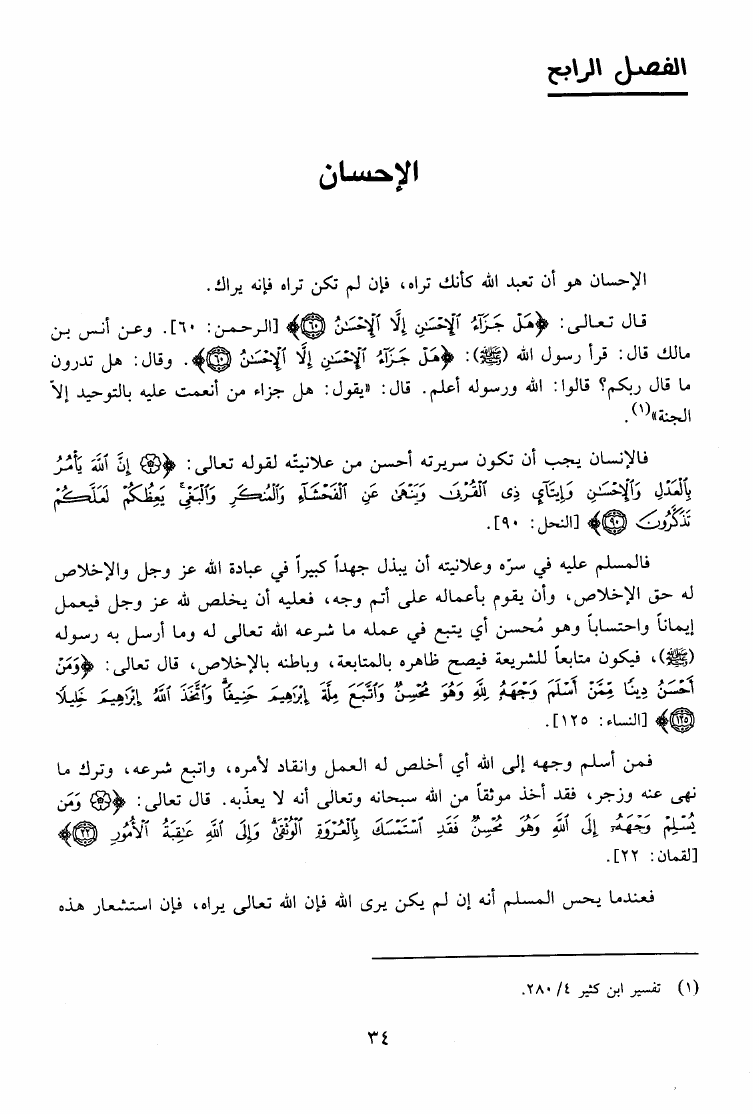 الفصل الرابع
الإحسان
الإحسان هو أن تعبد الله كأنك تراه، فإن لم تكن تراه فإنه يراك.
قال تعالى: ﴿هَلْ جَزَآءُ ٱلْإِحْسَٰنِ إِلَّا ٱلْإِحْسَٰنُ ۝٦٠﴾ [الرحمن: ٦٠]. وعن أنس بن
مالك قال: قرأ رسول الله (ﷺ): ﴿هَلْ جَزَآءُ ٱلْإِحْسَٰنِ إِلَّا ٱلْإِحْسَٰنُ ۝٦٠﴾. وقال: هل تدرون
ما قال ربكم؟ قالوا: الله ورسوله أعلم. قال: «يقول: هل جزاء من أنعمت عليه بالتوحيد إلاّ
الجنة»(١).
فالإنسان يجب أن تكون سريرته أحسن من علانيتّه لقوله تعالى: ﴿۞ إِنَّ ٱللَّهَ يَأْمُرُ
بِٱلْعَدْلِ وَٱلْإِحْسَٰنِ وَإِيتَآيِٕ ذِى ٱلْقُرْبَىٰ وَيَنْهَىٰ عَنِ ٱلْفَحْشَآءِ وَٱلْمُنكَرِ وَٱلْبَغْىِ ۚ يَعِظُكُمْ لَعَلَّكُمْ
تَذَكَّرُونَ ۝٩٠﴾ [النحل: ٩٠].
فالمسلم عليه في سرّه وعلانيته أن يبذل جهداً كبيراً في عبادة الله عز وجل والإخلاص
له حق الإخلاص، وأن يقوم بأعماله على أتم وجه، فعليه أن يخلص لله عز وجل فيعمل
إيماناً واحتساباً وهو مُحسن أي يتبع في عمله ما شرعه الله تعالى له وما أرسل به رسوله
(ﷺ)، فيكون متابعاً للشريعة فيصح ظاهره بالمتابعة، وباطنه بالإخلاص، قال تعالى: ﴿وَمَنْ
أَحْسَنُ دِينًا مِّمَّنْ أَسْلَمَ وَجْهَهُۥ لِلَّهِ وَهُوَ مُحْسِنٌ وَٱتَّبَعَ مِلَّةَ إِبْرَٰهِيمَ حَنِيفًا ۗ وَٱتَّخَذَ ٱللَّهُ إِبْرَٰهِيمَ خَلِيلًا
۝١٢٥﴾ [النساء: ١٢٥].
فمن أسلم وجهه إلى الله أي أخلص له العمل وانقاد لأمره، واتبع شرعه، وترك ما
نهى عنه وزجر، فقد أخذ موثقاً من الله سبحانه وتعالى أنه لا يعذّبه. قال تعالى: ﴿۞ وَمَن
يُسْلِمْ وَجْهَهُۥٓ إِلَى ٱللَّهِ وَهُوَ مُحْسِنٌ فَقَدِ ٱسْتَمْسَكَ بِٱلْعُرْوَةِ ٱلْوُثْقَىٰ ۗ وَإِلَى ٱللَّهِ عَٰقِبَةُ ٱلْأُمُورِ ۝٢٢﴾
[لقمان: ٢٢].
فعندما يحس المسلم أنه إن لم يكن يرى الله فإن الله تعالى يراه، فإن استشعار هذه
(١) تفسير ابن كثير ٤/ ٢٨٠.
٣٤